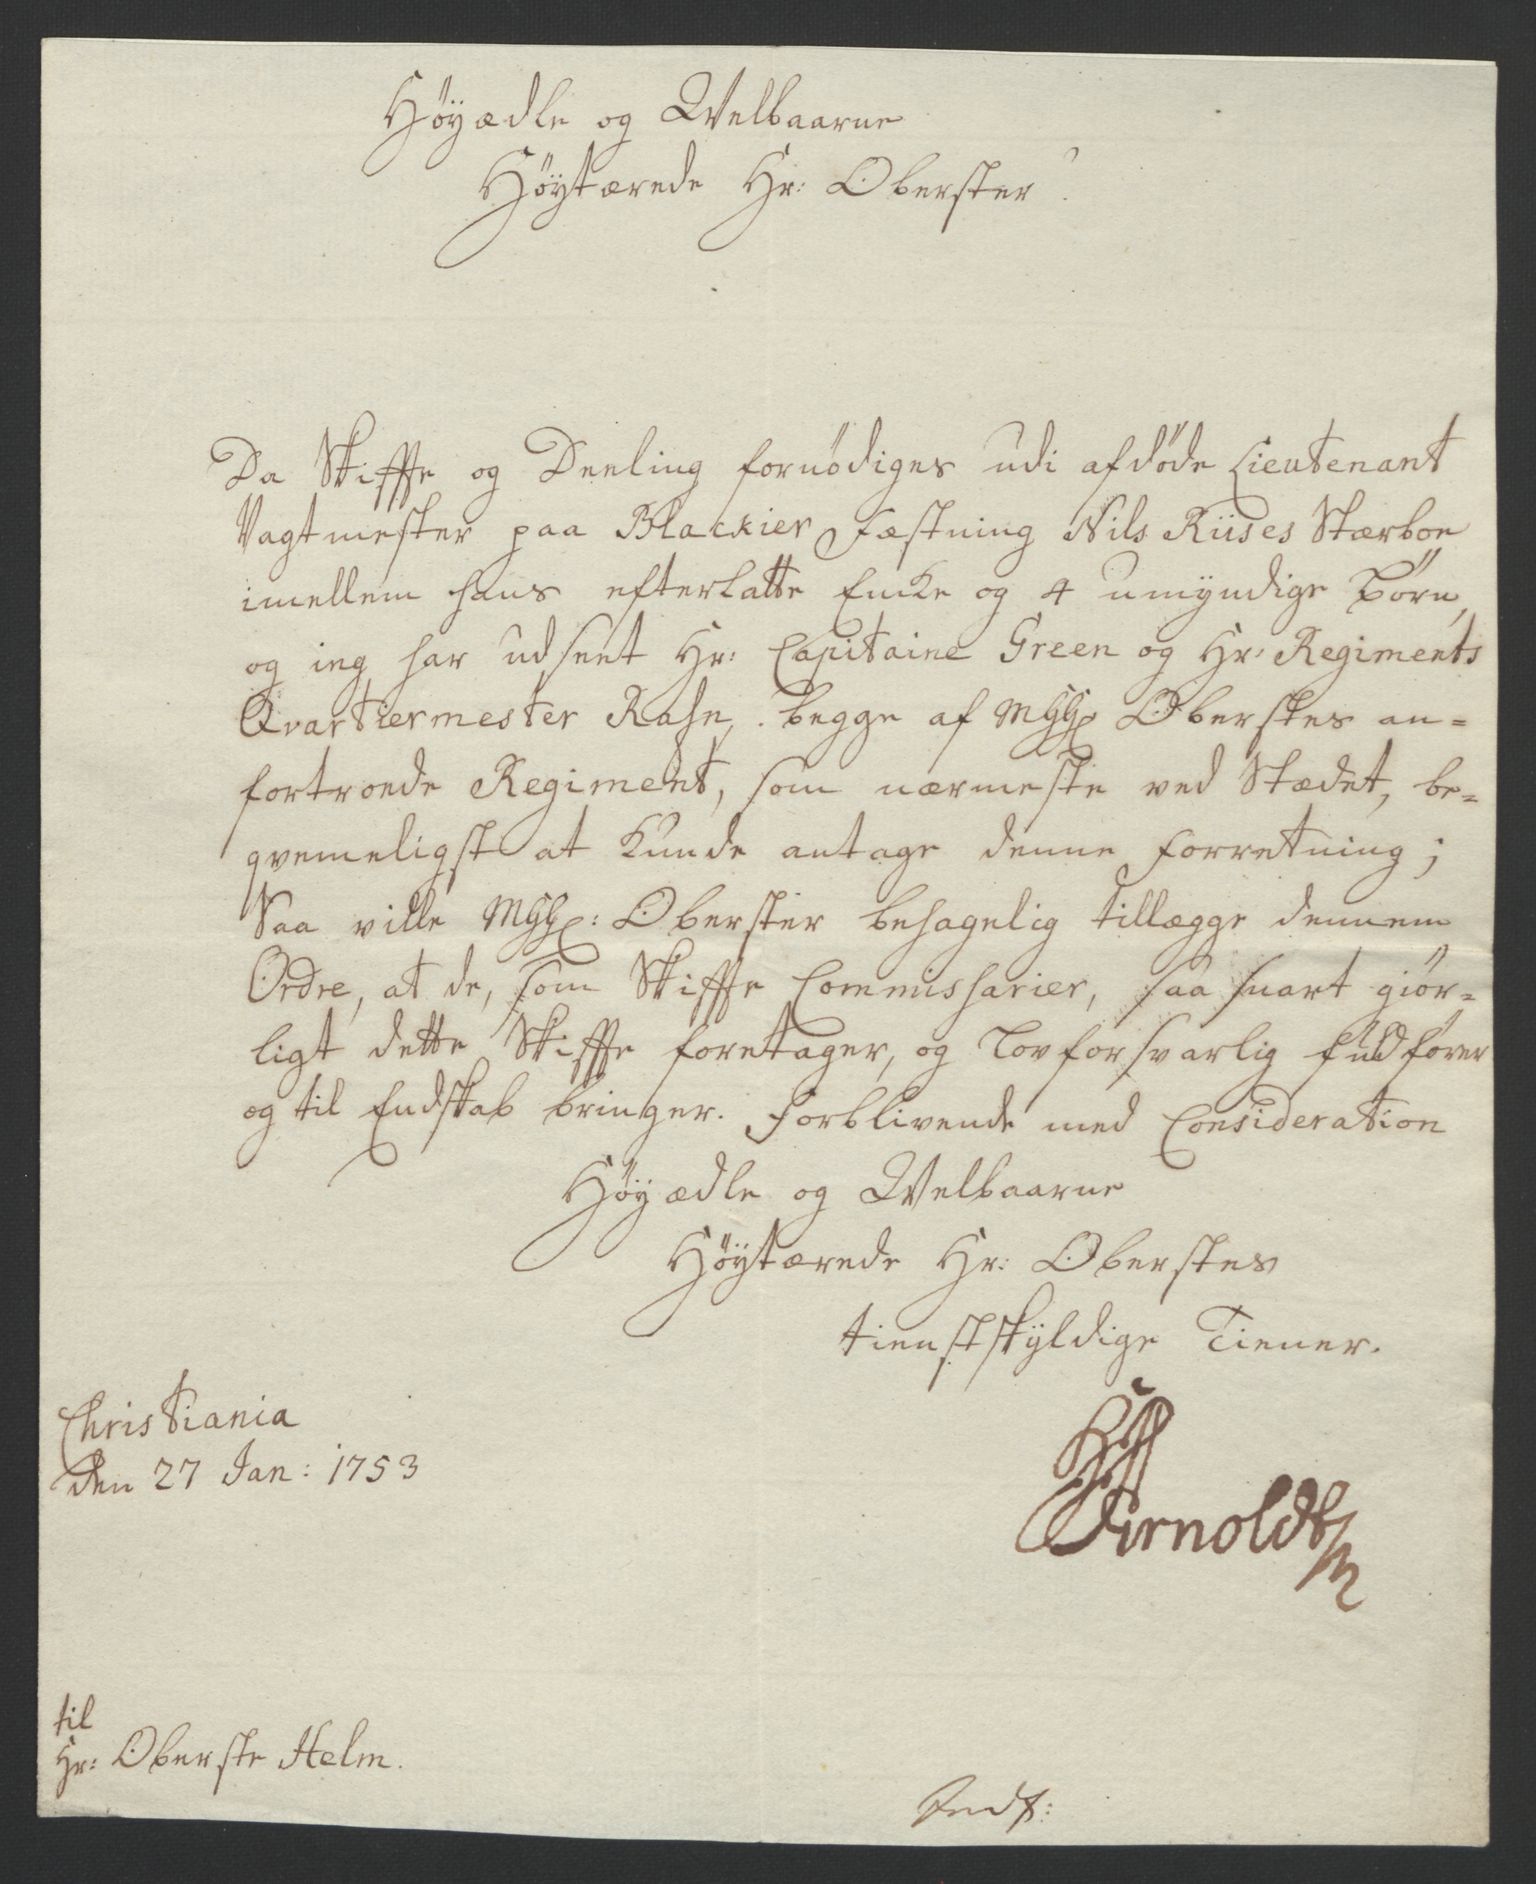 Höyædle og Welbaarne
Höytærede Hr: Oberster
Da Skiffte og Deeling fornödiges udi afdöde Lieutenant
Vagtmester paa Blackier Fæstning Nils Riises Stærboe
imellem hans efterlatte Encke og 4 umÿndige Börn,
og ieg har udseet Hr: Capitaine Green og Hr: Regiments
Qvartiermester Rahn, begge af MHH: Oberstes an=
fortroede Regiment, som nærmeste ved Stædet, be=
qvemeligst at kunde antage denne Forretning;
Saa ville MHH: Oberster behagelig tillægge dennem
Ordre, at de, som Skiffte Commissarier, saa snart giör=
ligt dette Skiffte foretager, og Lovforsvarlig fuldförer
og til Endskab bringer. Forblivende med Consideration
Höyædle og Welbaarne
Höytærede Hr: Oberstes
tienstskÿldige Tiener.
Christiania
den 27 Jan: 1753
Arnoldt
til
Hr: Oberste Helm.